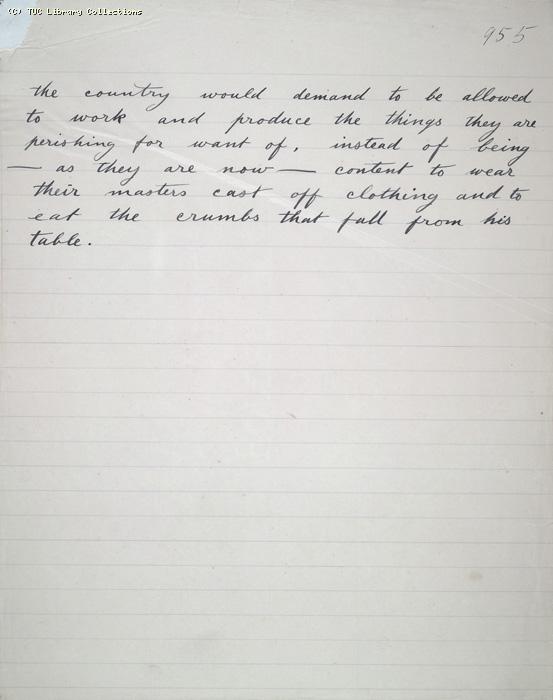 (C) TUC Library Collections
955
the country would demand to be allowed
to work and produce the things they are
perishing for want of, instead of being
— as they are now — content to wear
their masters cast off clothing and to
eat the crumbs that fall from his
table.